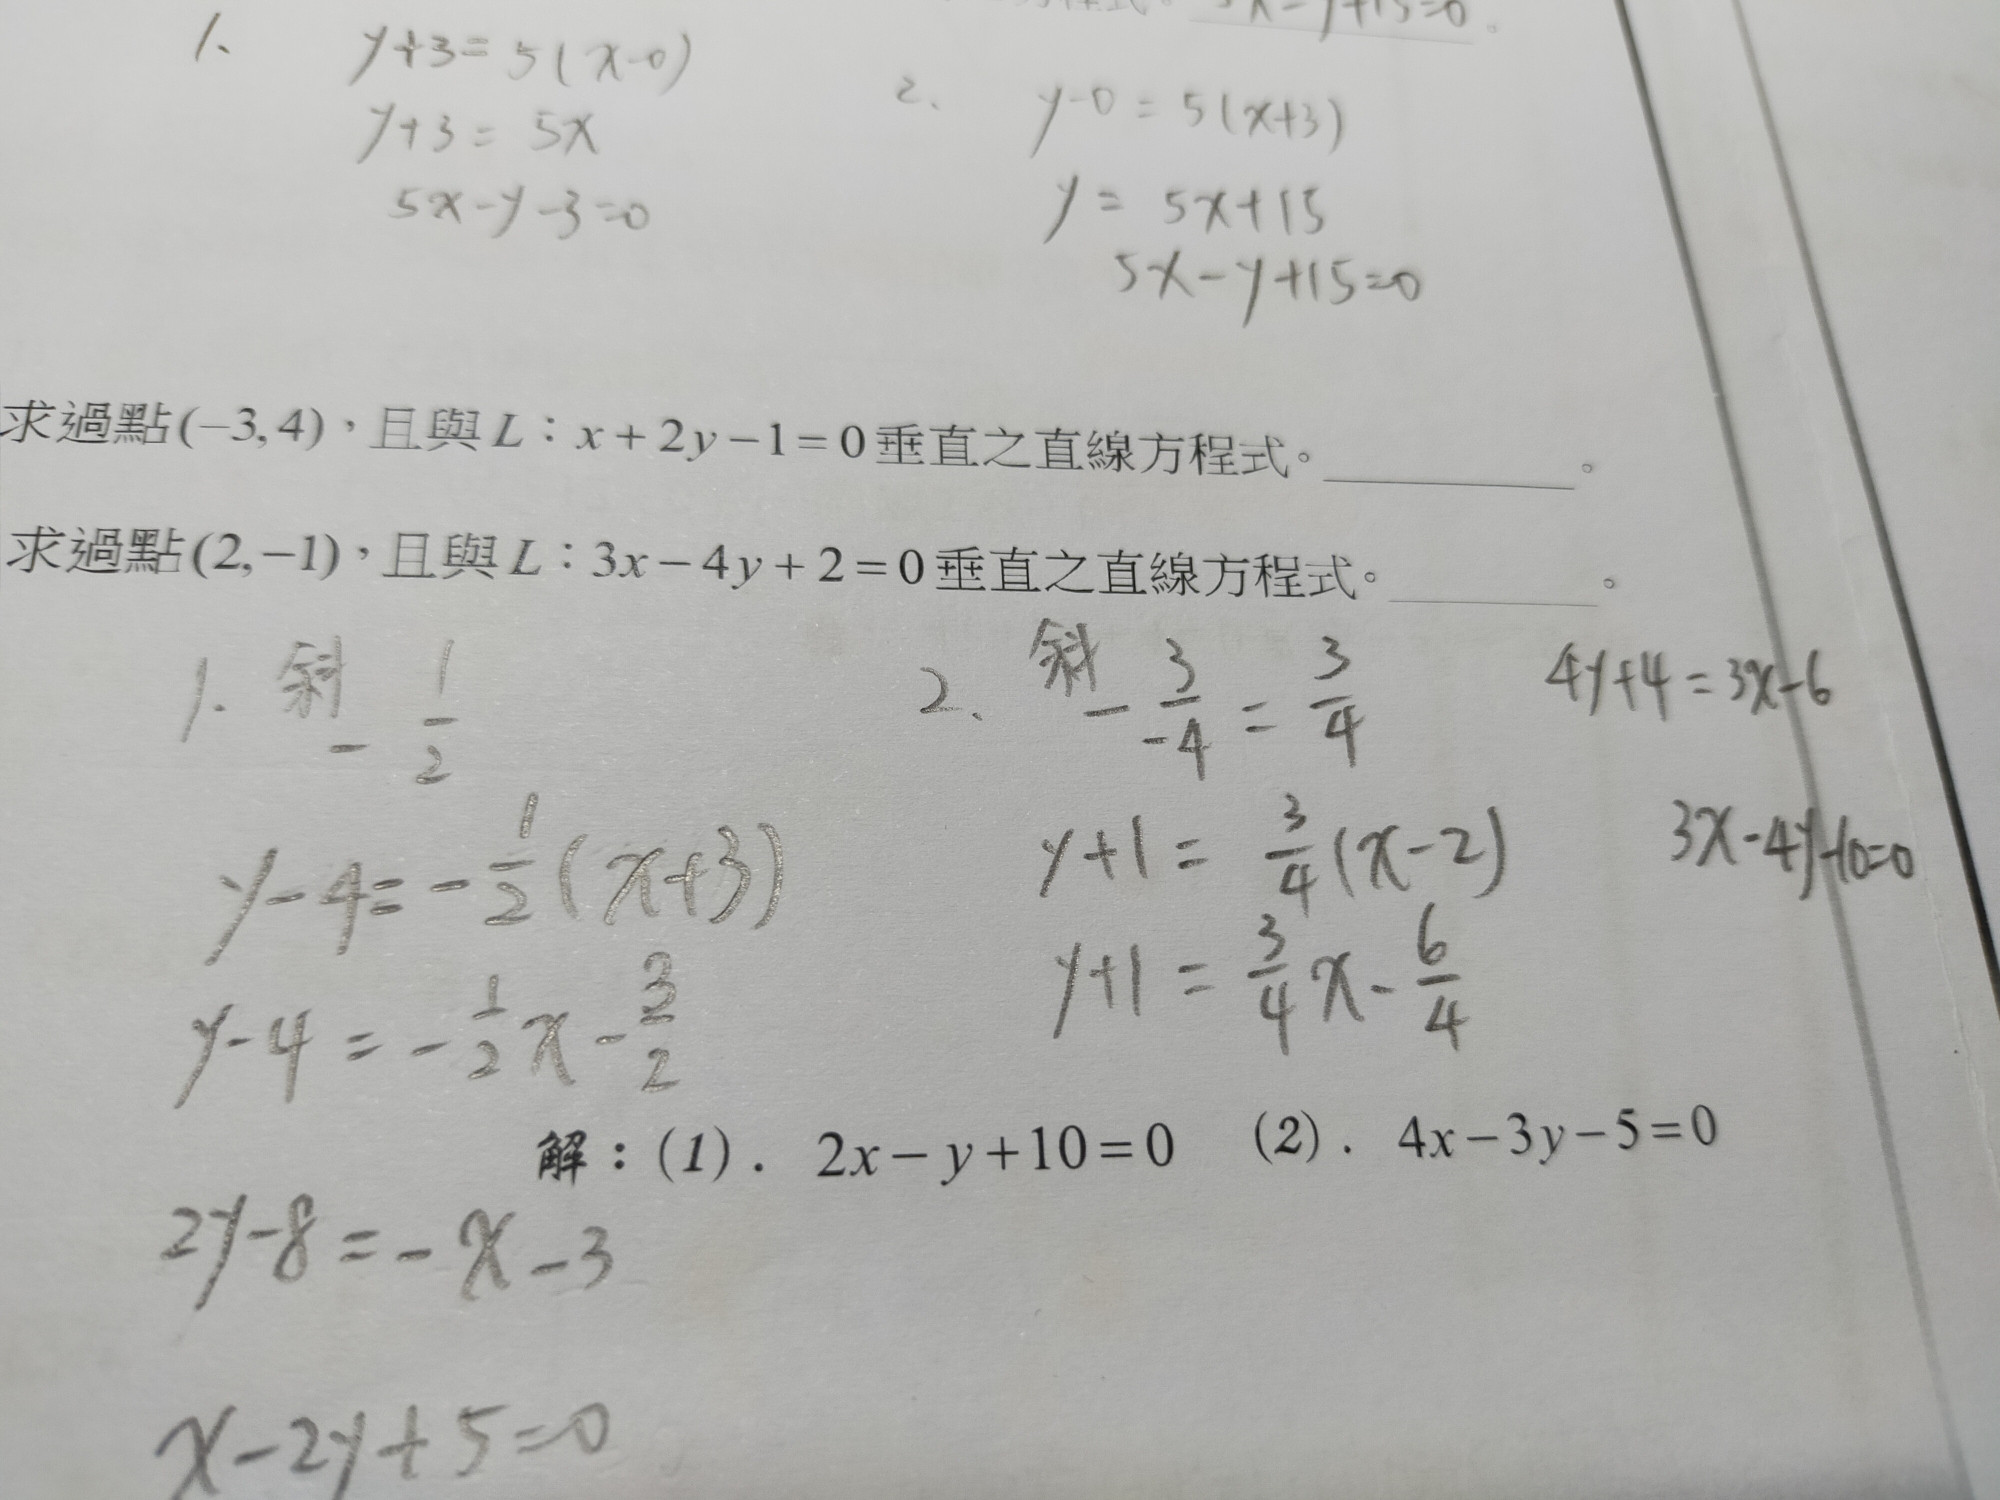 5x-y+15=0。
1、
y+3=5(x-0)
y+3=5x
5x-y-3=0
2、
y-0=5(x+3)
y=5x+15
5x-y+15=0
求過點(-3,4)，且與L：x+2y-1=0垂直之直線方程式。________。
求過點(2,-1)，且與L：3x-4y+2=0垂直之直線方程式。________。
1. 斜 -1/2
y-4=-1/2(x+3)
y-4=-1/2x-3/2
2、斜 -3/-4=3/4
y+1=3/4(x-2)
y+1=3/4x-6/4
4y+4=3x-6
3x-4y-10=0
解：(1). 2x-y+10=0 (2). 4x-3y-5=0
2y-8=-x-3
x-2y+5=0